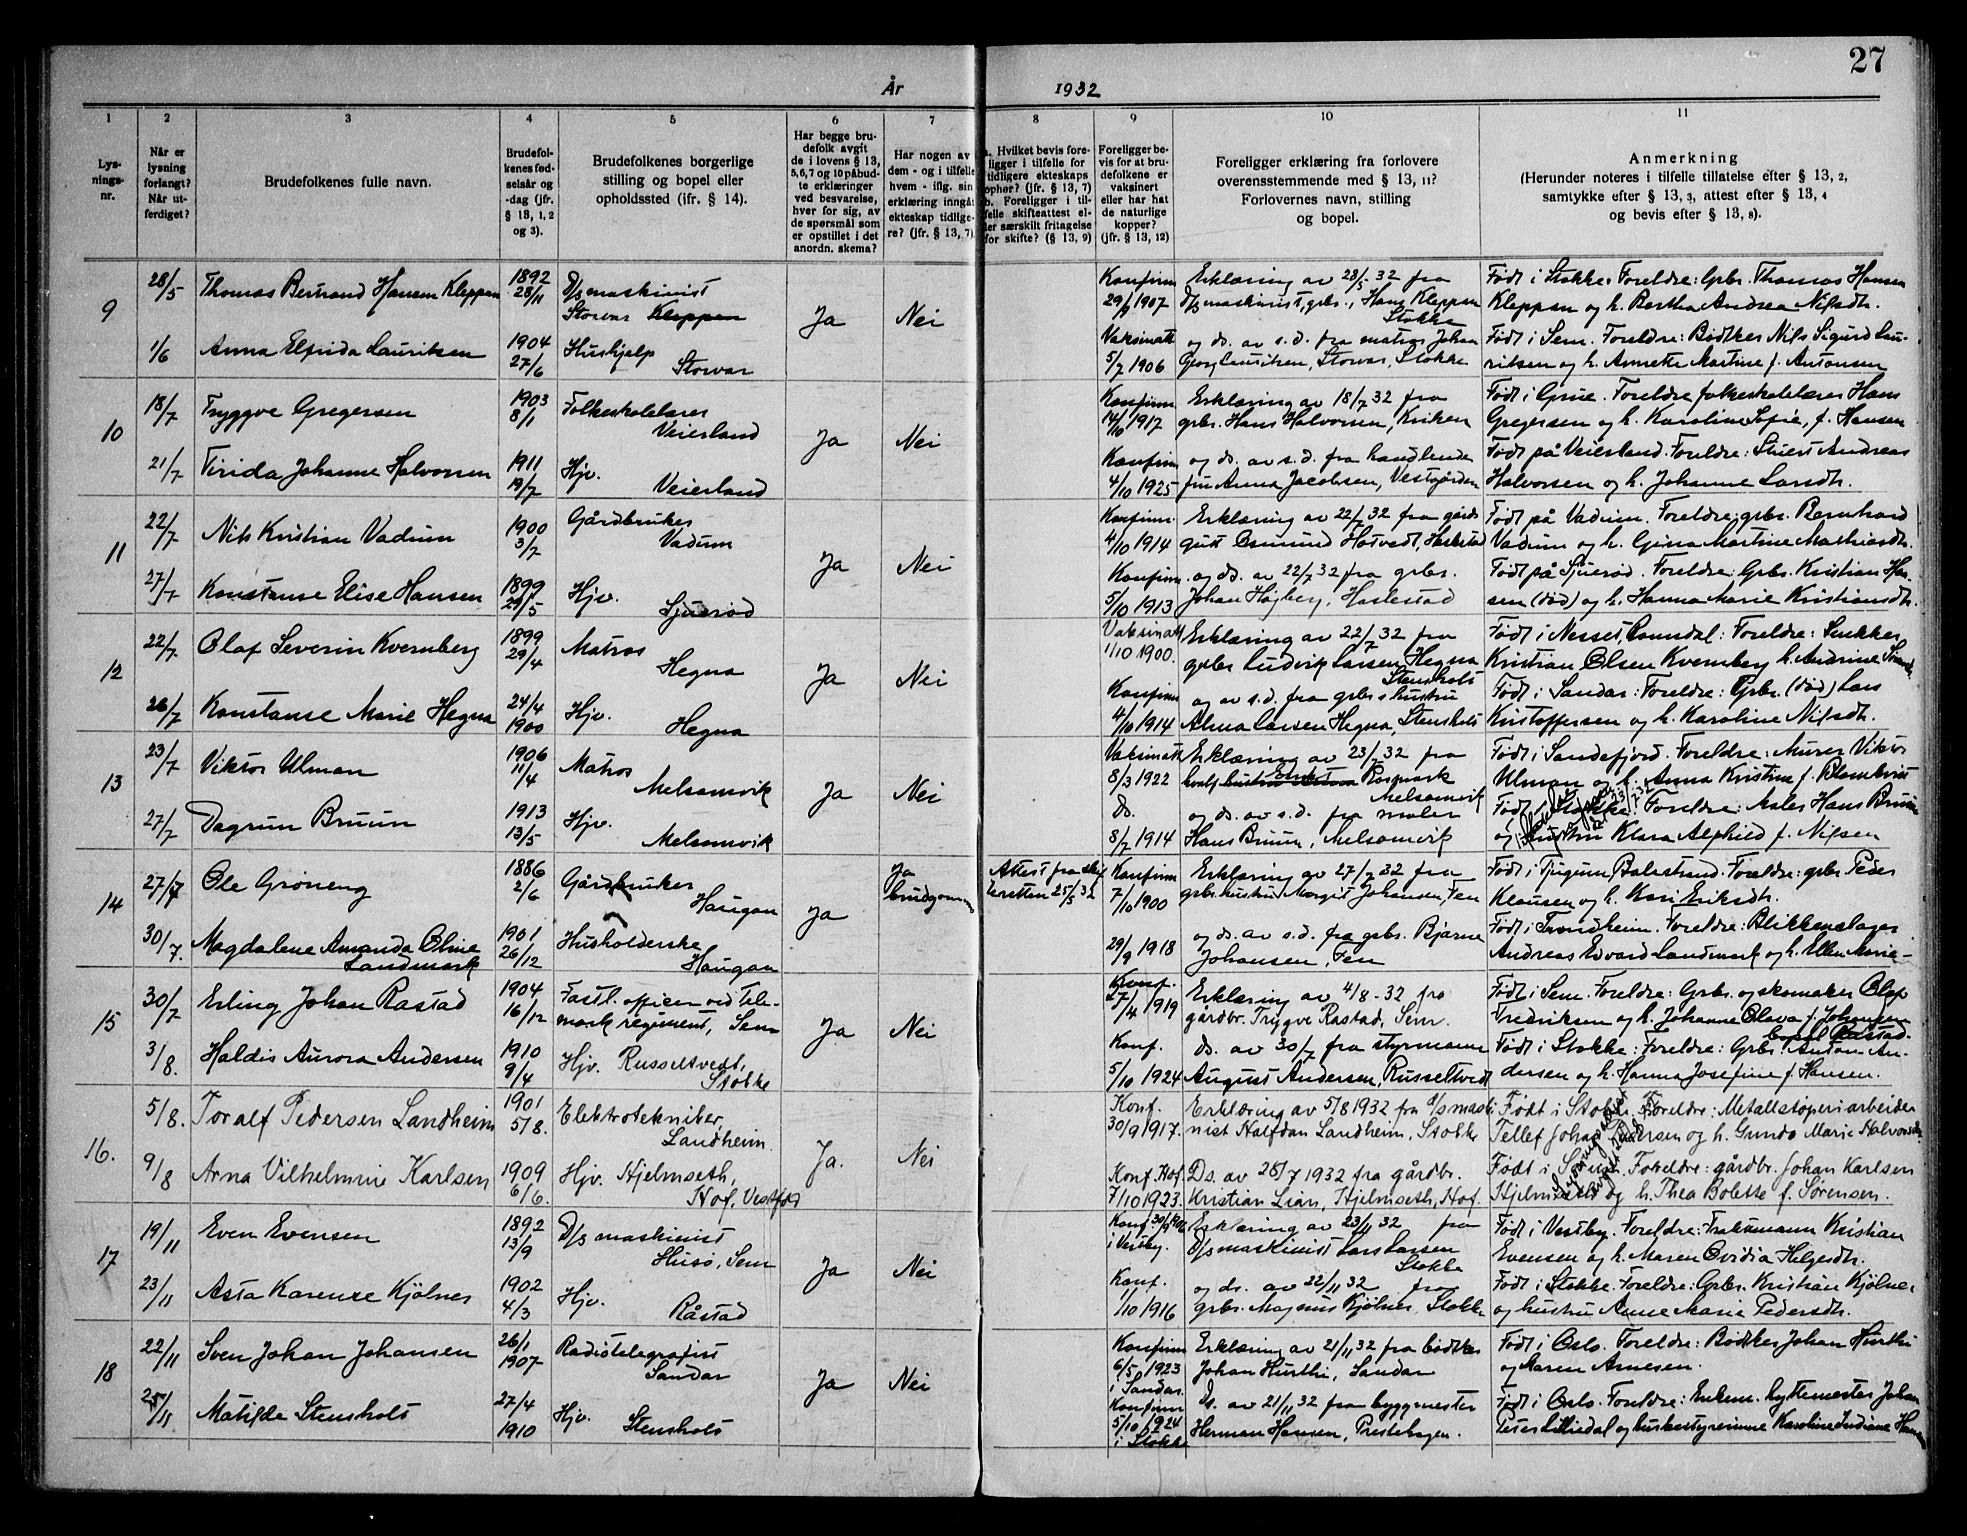 27
År 1932
1 2 3 4 5 6 7 8 9 10 11
Lysningsnr.
Når er lysning forlangt? Når utferdiget?
Brudefolkenes fulle navn.
Brudefolkenes fødselsår og -dag (jfr. § 13, 1, 2 og 3).
Brudefolkenes borgerlige stilling og bopel eller opholdssted (jfr. § 14).
Har begge brudefolk avgitt de i lovens § 13, 5, 6, 7 og 10 påbudte erklæringer ved besvarelse, hver for sig, av de spørsmål som er opstillet i det anordn. skema?
Har nogen av dem - og i tilfelle hvem - iflg. sin erklæring inngått ekteskap tidligere? (jfr. § 13, 7)
a. Hvilket bevis foreligger i tilfelle for tidligere ekteskaps ophør? (jfr. § 13, 7) b. Foreligger i tilfelle skifteattest eller særskilt fritagelse for skifte? (§ 13, 9)
Foreligger bevis for at brudefolkene er vaksinert eller har hat de naturlige kopper? (jfr. § 13, 12)
Foreligger erklæring fra forlovere overensstemmende med § 13, 11? Forlovernes navn, stilling og bopel.
Anmerkning (Herunder noteres i tilfelle tillatelse efter § 13, 2, samtykke efter § 13, 3, attest efter § 13, 4 og bevis efter § 13, 8).
9
28/5 Thomas Bertrand Hansen Kleppan 1892 28/11 D/s maskinist Storvar Kleppan
Ja Nei
Konfirm 29/9 1907 Erklæring av 28/5 32 fra D/s maskinist, grbr., Hans Kleppan Stokke
Født i Stokke. Foreldre: Grbr. Thomas Hansen Kleppan og h. Bertha Andrea Nilsdtr.
1/6 Anna Elfrida Lauritsen 1904 27/6 Hushjelp Storvar
Vaksinatt 5/7 1906 og ds. av s.d. fra matros Johan Georg Lauritsen, Storvar, Stokke
Født i Sem. Foreldre: Bødker Nils Sigurd Lauritsen og h. Annette Martine f. Antonsen
10
18/7 Tryggve Gregersen 1903 8/1 Folkeskolelærer Veierland
Ja Nei
Konfirm 14/10 1917 Erklæring av 18/7 32 fra grbr. Hans Halvorsen, Kriken
Født i Grue. Foreldre folkeskolelærer Hans Gregersen og h. Karoline Sofie, f. Hansen
21/7 Tirida Johanne Halvorsen 1911 19/7 Hjv. Veierland
Konfirm 4/10 1925 og ds. av s.d. fra handlende fru Anna Jacobsen, Vestgården
Født på Veierland. Foreldre: Stuert Andreas Halvorsen og h. Johanne Larsdtr.
11
22/7 Nils Kristian Vadum 1900 3/7 Gårdbruker Vadum
Ja Nei
Konfirm. 4/10 1914 Erklæring av 22/7 32 fra gårdsgutt Osmund Hotvedt, Haslestad
Født på Vadum. Foreldre: grbr. Bernhard Vadum og h. Gina Martine Mathiasdtr.
27/7 Konstanse Elise Hansen 1899 29/5 Hjv. Sjuerød
Konfirm. 5/10 1913 og ds. av 22/7 32 fra grbr. Johan Høgberg, Haslestad
Født på Sjuerød. Foreldre: Grbr. Kristian Hansen (død) og h. Hanna Marie Kristiansdtr.
12
22/7 Olaf Severin Kvernberg 1899 29/4 Matros Hegna
Ja Nei
Vaksinatt 1/10 1900. Erklæring av 22/7 32 fra grbr Ludvik Larsen Hegna Stensholt
Født i Nesset, Romsdal: Foreldre: Snekker Kristian Olsen Kvernberg h. Andrine
26/7 Konstanse Marie Hegna 24/4 1900 Hjv. Hegna
Konfirm 4/10 1914 og av s.d. fra grbr.s hustru Alma Larsen Hegna, Stensholt
Født i Sandar: Foreldre: Grbr. (død) Lars Kristoffersen og h. Karoline Nilsdtr.
13
23/7 Viktor Ulman 1906 11/4 Matros Melsomvik
Ja Nei
Vaksinatt 8/3 1922 Erklæring av 23/7 32 fra hustru Rosmark Melsomvik
Født i Sandefjord. Foreldre: Murer Viktor Ulman og h. Anna Kristine f. Blomkvist
27/7 Dagrun Bruun 1913 13/5 Hjv. Melsomvik
Ds. 8/7 1914 og ds. av s.d. fra maler Hans Bruun, Melsomvik
Født i Stokke. Foreldre: Maler Hans Bruun og hustru Klara Alfhild f. Nilsen
14
27/7 Ole Grøneng 1886 2/6 Gårdbruker Haugan
Ja Ja brudgommen
Attest fra skifteretten 25/5 32
Konfirm 7/10 1900 Erklæring av 27/7 32 fra grbr. hustru Margit Johansen, Fen
Født i Tjugum, Balestrand. Foreldre: grbr. Peder Klausen og h. Kari Eriksdtr.
30/7. Magdalene Amanda Oline Landmark 1901 26/12 Husholderske Haugan
29/9 1918 og ds. av s.d. fra grbr. Bjarne Johansen, Fen
Født i Trondheim. Foreldre: Blikkenslager Andreas Edvard Landmark og h. Ellen Marie -
15
30/7 Erling Johan Råstad 1904 16/12 Fastl. officer ved Telemark regiment, Sem
Ja Nei
Konf. 27/4 1919 Erklæring av 4/8 - 32 fra gårdbr. Trygve Rastad, Sem.
Født i Sem. Foreldre: Grbr. og skomaker Olaf Fredriksen og h. Johanne Olava f. Johansen bopel Råstad.
3/8. Haldis Aurora Andersen 1910 9/4 Hjv. Russeltvedt, Stokke
Konf. 5/10 1924 Ds. av 30/7 fra styrmann August Andersen, Russeltvedt
Født i Stokke: Foreldre: Grbr. Anton Andersen og h. Hanna Josefine f. Hansen.
16.
5/8. Toralf Pedersen Landheim 1901 5/8. Elektrotekniker, Landheim.
Ja. Nei
Konf. 30/9 1917. Erklæring av 5/8 1932 fra d/s maskinist Halfdan Landheim, Stokke
Født i Stokke. Foreldre: Metallstøperiarbeider Tellef Johan Pedersen og h. Gunda Marie Halvorsdtr
9/8 Arna Vilhelmine Karlsen 1909 6/6. Hjv. Hjelmseth, Hof, Vestfold
Konf. Hof. 7/10 1923. Ds. av 28/7 1932 fra gårdbr. Kristian Lian, Hjelmseth, Hof.
Født i Foreldre: gårdbr. Johan Karlsen Hjelmseth og h. Thea Bolette f. Sørensen.
17
19/11 Even Evensen 1892 13/9 D/s maskinist Husø, Sem
Ja Nei
Konf. i Vestby. Erklæring av 23/11 32 fra D/s maskinist Lars Larsen Stokke
Født i Vestby. Foreldre: Kristian Evensen og h. Maren Ovidia Helgesdtr.
23/11 Asta Karense Kjølner 1902 4/3 Hjv. Råstad
Konf. 1/10 1916 og ds. av 22/11 32 fra grbr. Magnus Kjølner, Stokke
Født i Stokke. Foreldre: Grbr. Kristian Kjølner og hustru Anne Marie Pedersdtr.
18
22/11 Sven Johan Johansen 26/1 1907 Radiotelegrafist Sandar
Ja Nei
Konfirm 6/5 1923 i Sandar. Erklæring av 21/11 32 fra bødker Johan Hurthi, Sandar
Født i Oslo. Foreldre: Bødker Johan Hurthi og Maren Arnesen.
25/11 Matilde Stensholt 27/4 1910 Hjv. Stensholt
Konfirm 5/10 1924 i Stokke Ds. av 21/11 32 fra byggmester Herman Hansen, Prestehagen.
Født i Oslo. Foreldre: Enkem. hyttemester Johan Peter Lilledal og husbestyrerinne Karoline Indiane